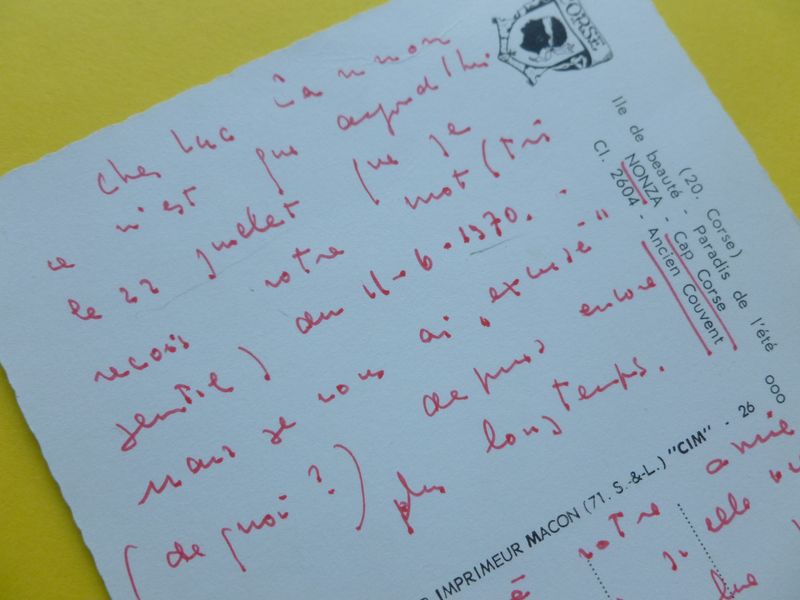 CORSE
Cher Luc
ce n'est que aujourd'hui
le 22 juillet que je
reçois votre mot (très
gentil) du 11-6-1970.
Mais je vous ai "excusé"
(de quoi?) depuis encore
plus longtemps.
(20. Corse)
Ile de beauté - Paradis de l'été
NONZA - Cap Corse
Cl. 2604 - Ancien Couvent
IMPRIMEUR MACON (71. S.-&-L.) "CIM" - 26 000
votre amie
si elle